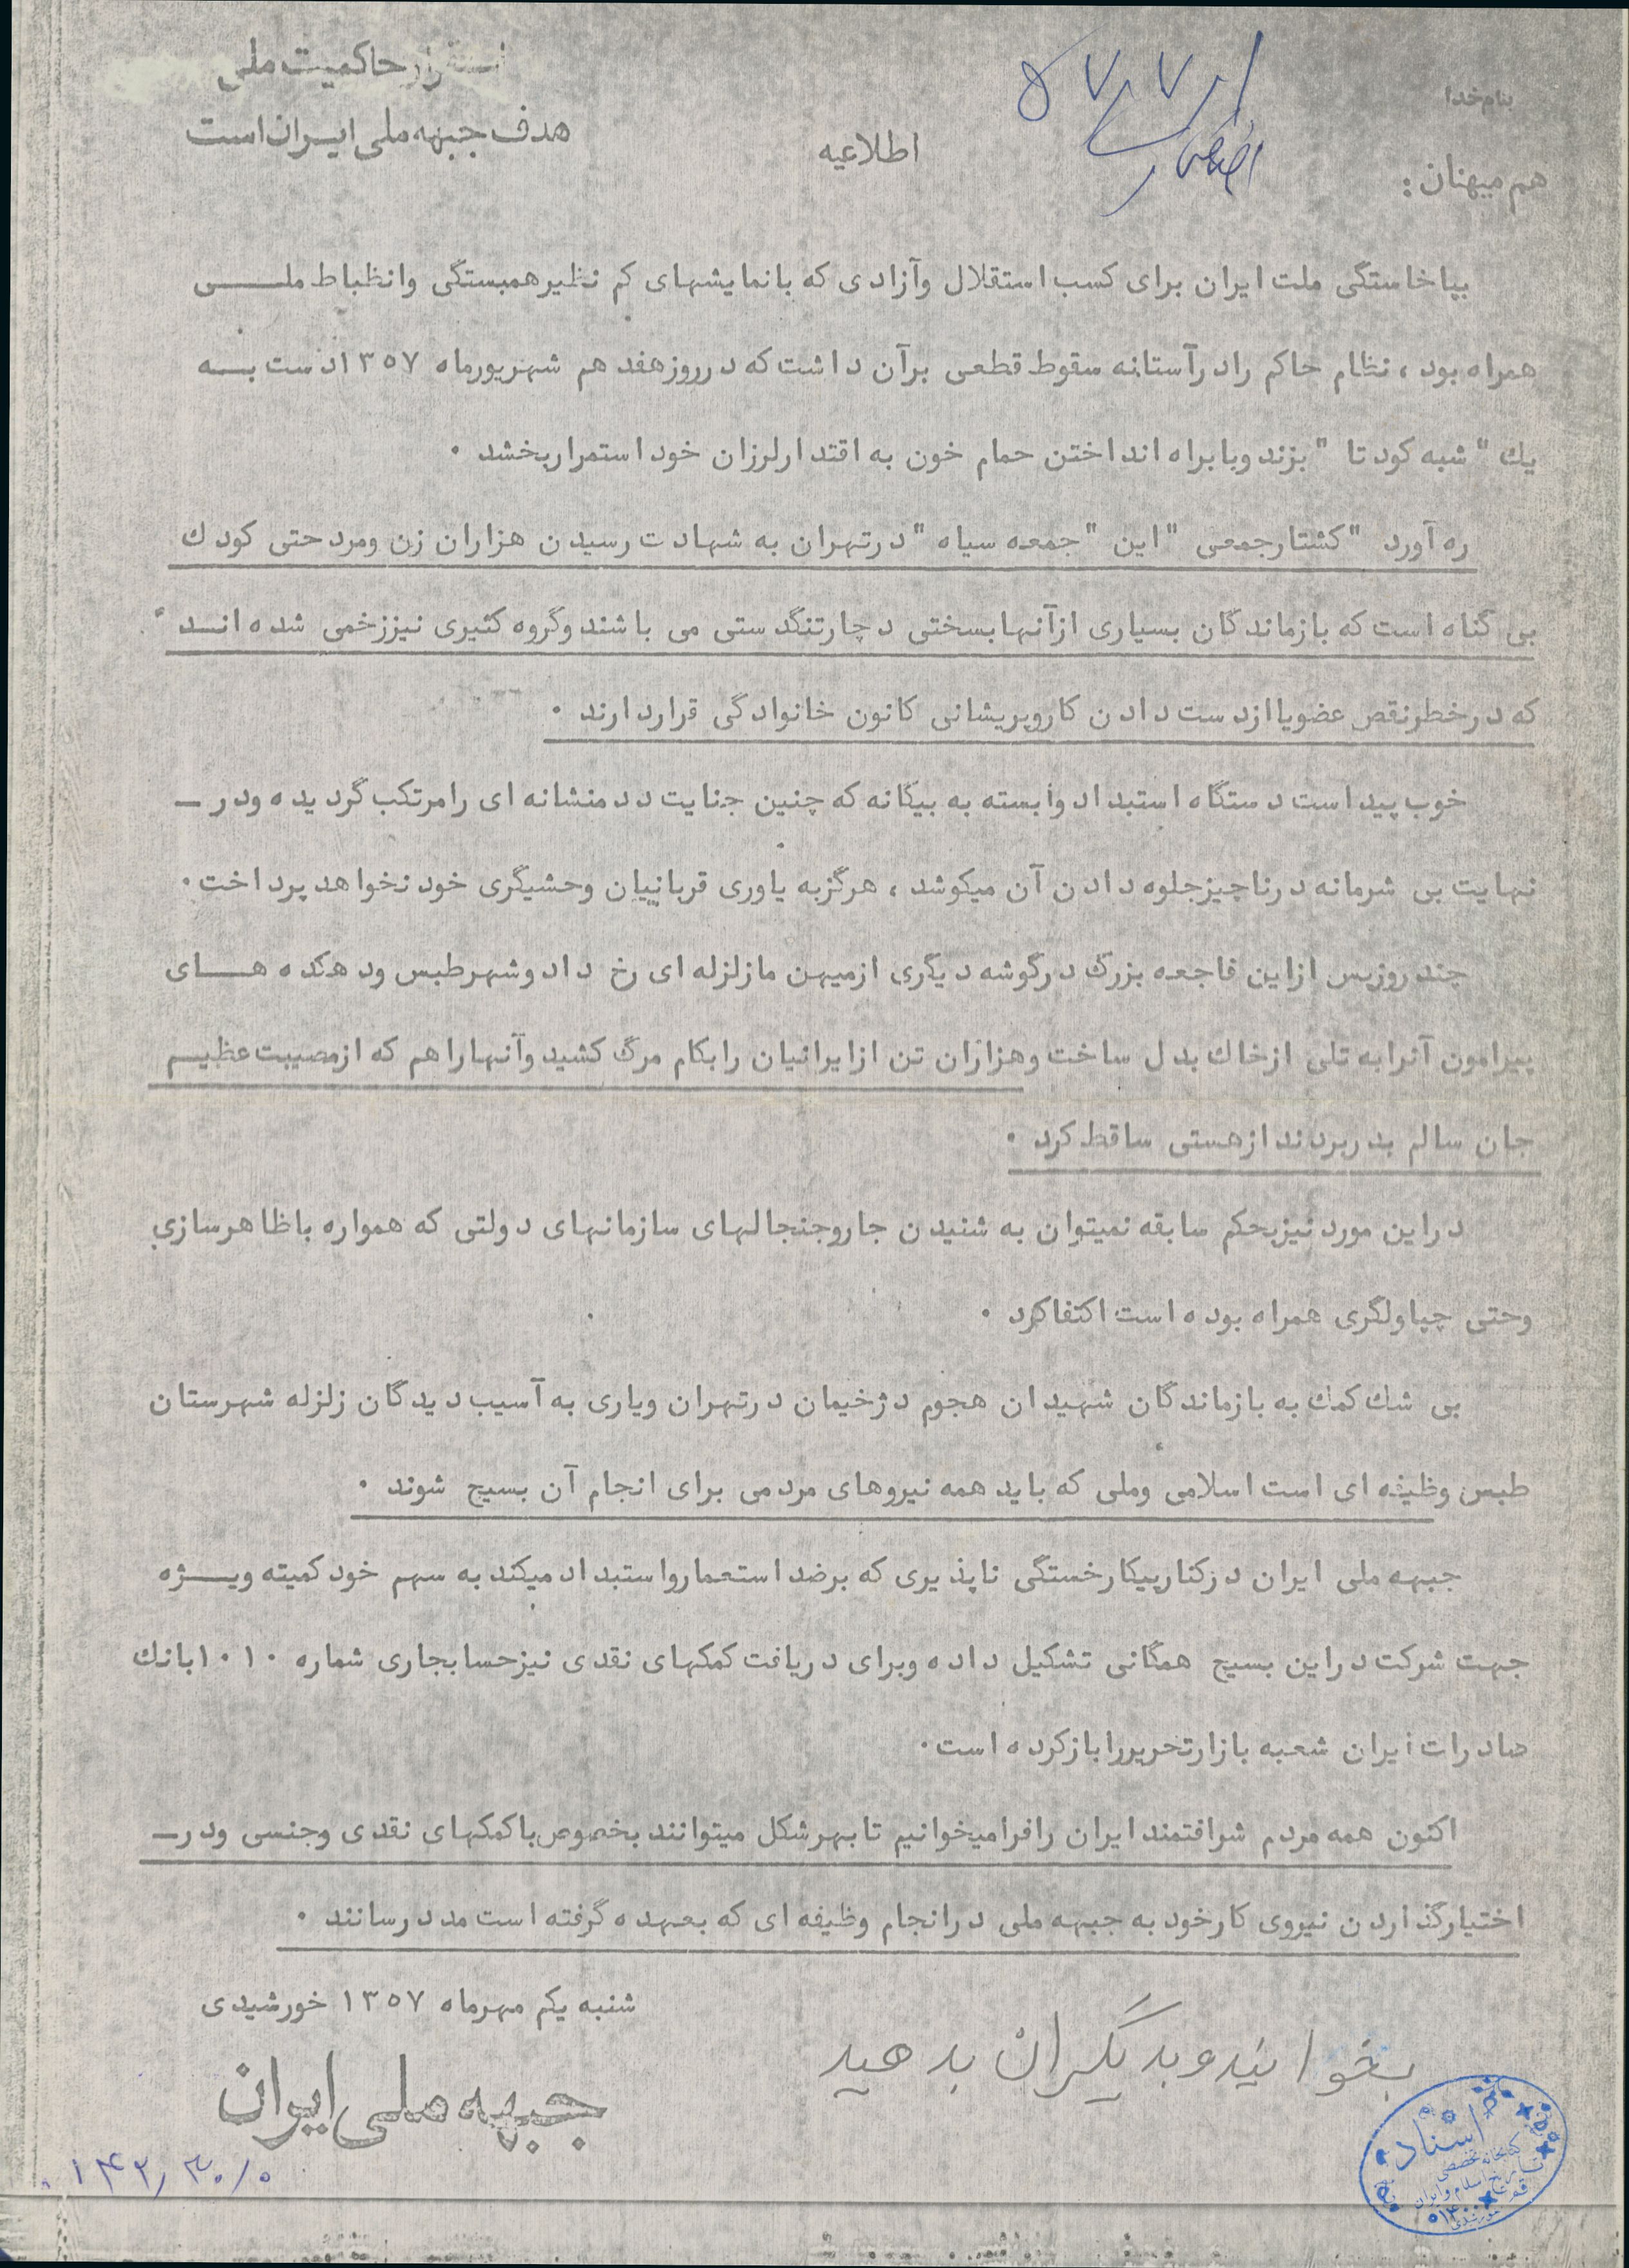 بنام خدا
استقرار حاکمیت ملی
هدف جبهه ملی ایران است
۵۷/۷/۱
اطلاعیه
هم میهنان :
بپاخاستگی ملت ایران برای کسب استقلال وآزادی که بانمایشهای کم نظیرهمبستگی وانظباط ملــــی
همراه بود ، نظام حاکم رادرآستانه سقوط قطعی برآن داشت که درروزهفدهم شهریورماه ۱۳۵۷دست بــه
یك "شبه کودتا "بزند وبابراه انداختن حمام خون به اقتدارلرزان خود استمراربخشد .
ره آورد "کشتارجمعی "این "جمعه سیاه "درتهران به شهادت رسیدن هزاران زن ومرد حتی کودك
بی گناه است که بازماندگان بسیاری ازآنهابسختی دچارتنگدستی می باشند وگروه کثیری نیززخمی شده انــد
که درخطرنقص عضویاازدست دادن کاروپریشانی کانون خانوادگی قراردارند .
خوب پیداست دستگاه استبداد وابسته به بیگانه که چنین جنایت ددمنشانه ای رامرتکب گردیده ودرـ
نهایت بی شرمانه درناچیزجلوه دادن آن میکوشد ، هرگزبه یاوری قربانیان وحشیگری خود نخواهد پرداخت .
چند روزپس ازاین فاجعه بزرگ درگوشه دیگری ازمیهن مازلزله ای رخ داد وشهرطبس ودهکده هــای
پیرامون آنرابه تلی ازخاك بدل ساخت وهزاران تن ازایرانیان رابکام مرگ کشید وآنهاراهم که ازمصیبت عظیــم
جان سالم بدربردند ازهستی ساقط کرد .
دراین مورد نیزبحکم سابقه نمیتوان به شنیدن جاروجنجالهای سازمانهای دولتی که همواره باظاهرسازی
وحتی چپاولگری همراه بوده است اکتفاکرد .
بی شك کمك به بازماندگان شهیدان هجوم دژخیمان درتهران ویاری به آسیب دیدگان زلزله شهرستان
طبس وظیفه ای است اسلامی وملی که باید همه نیروهای مردمی برای انجام آن بسیج شوند .
جبهه ملی ایران درکنارپیکارخستگی ناپذیری که برضد استعمارواستبداد میکند به سهم خود کمیته ویــژه
جهت شرکت دراین بسیج همگانی تشکیل داده وبرای دریافت کمکهای نقدی نیزحسابجاری شماره ۱۰۱۰بانك
صادرات ایران شعبه بازارتحریررابازکرده است .
اکنون همه مردم شرافتمند ایران رافرامیخوانیم تابهرشکل میتوانند بخصوص باکمکهای نقدی وجنسی ودرـ
اختیارگذاردن نیروی کارخود به جبهه ملی درانجام وظیفه ای که بعهده گرفته است مدد رسانند .
شنبه یکم مهرماه ۱۳۵۷ خورشیدی
بخوانید و بدیگران بدهید
جبهه ملی ایران
اسناد
کتابخانه تخصصی
تاریخ اسلام و ایران
قم